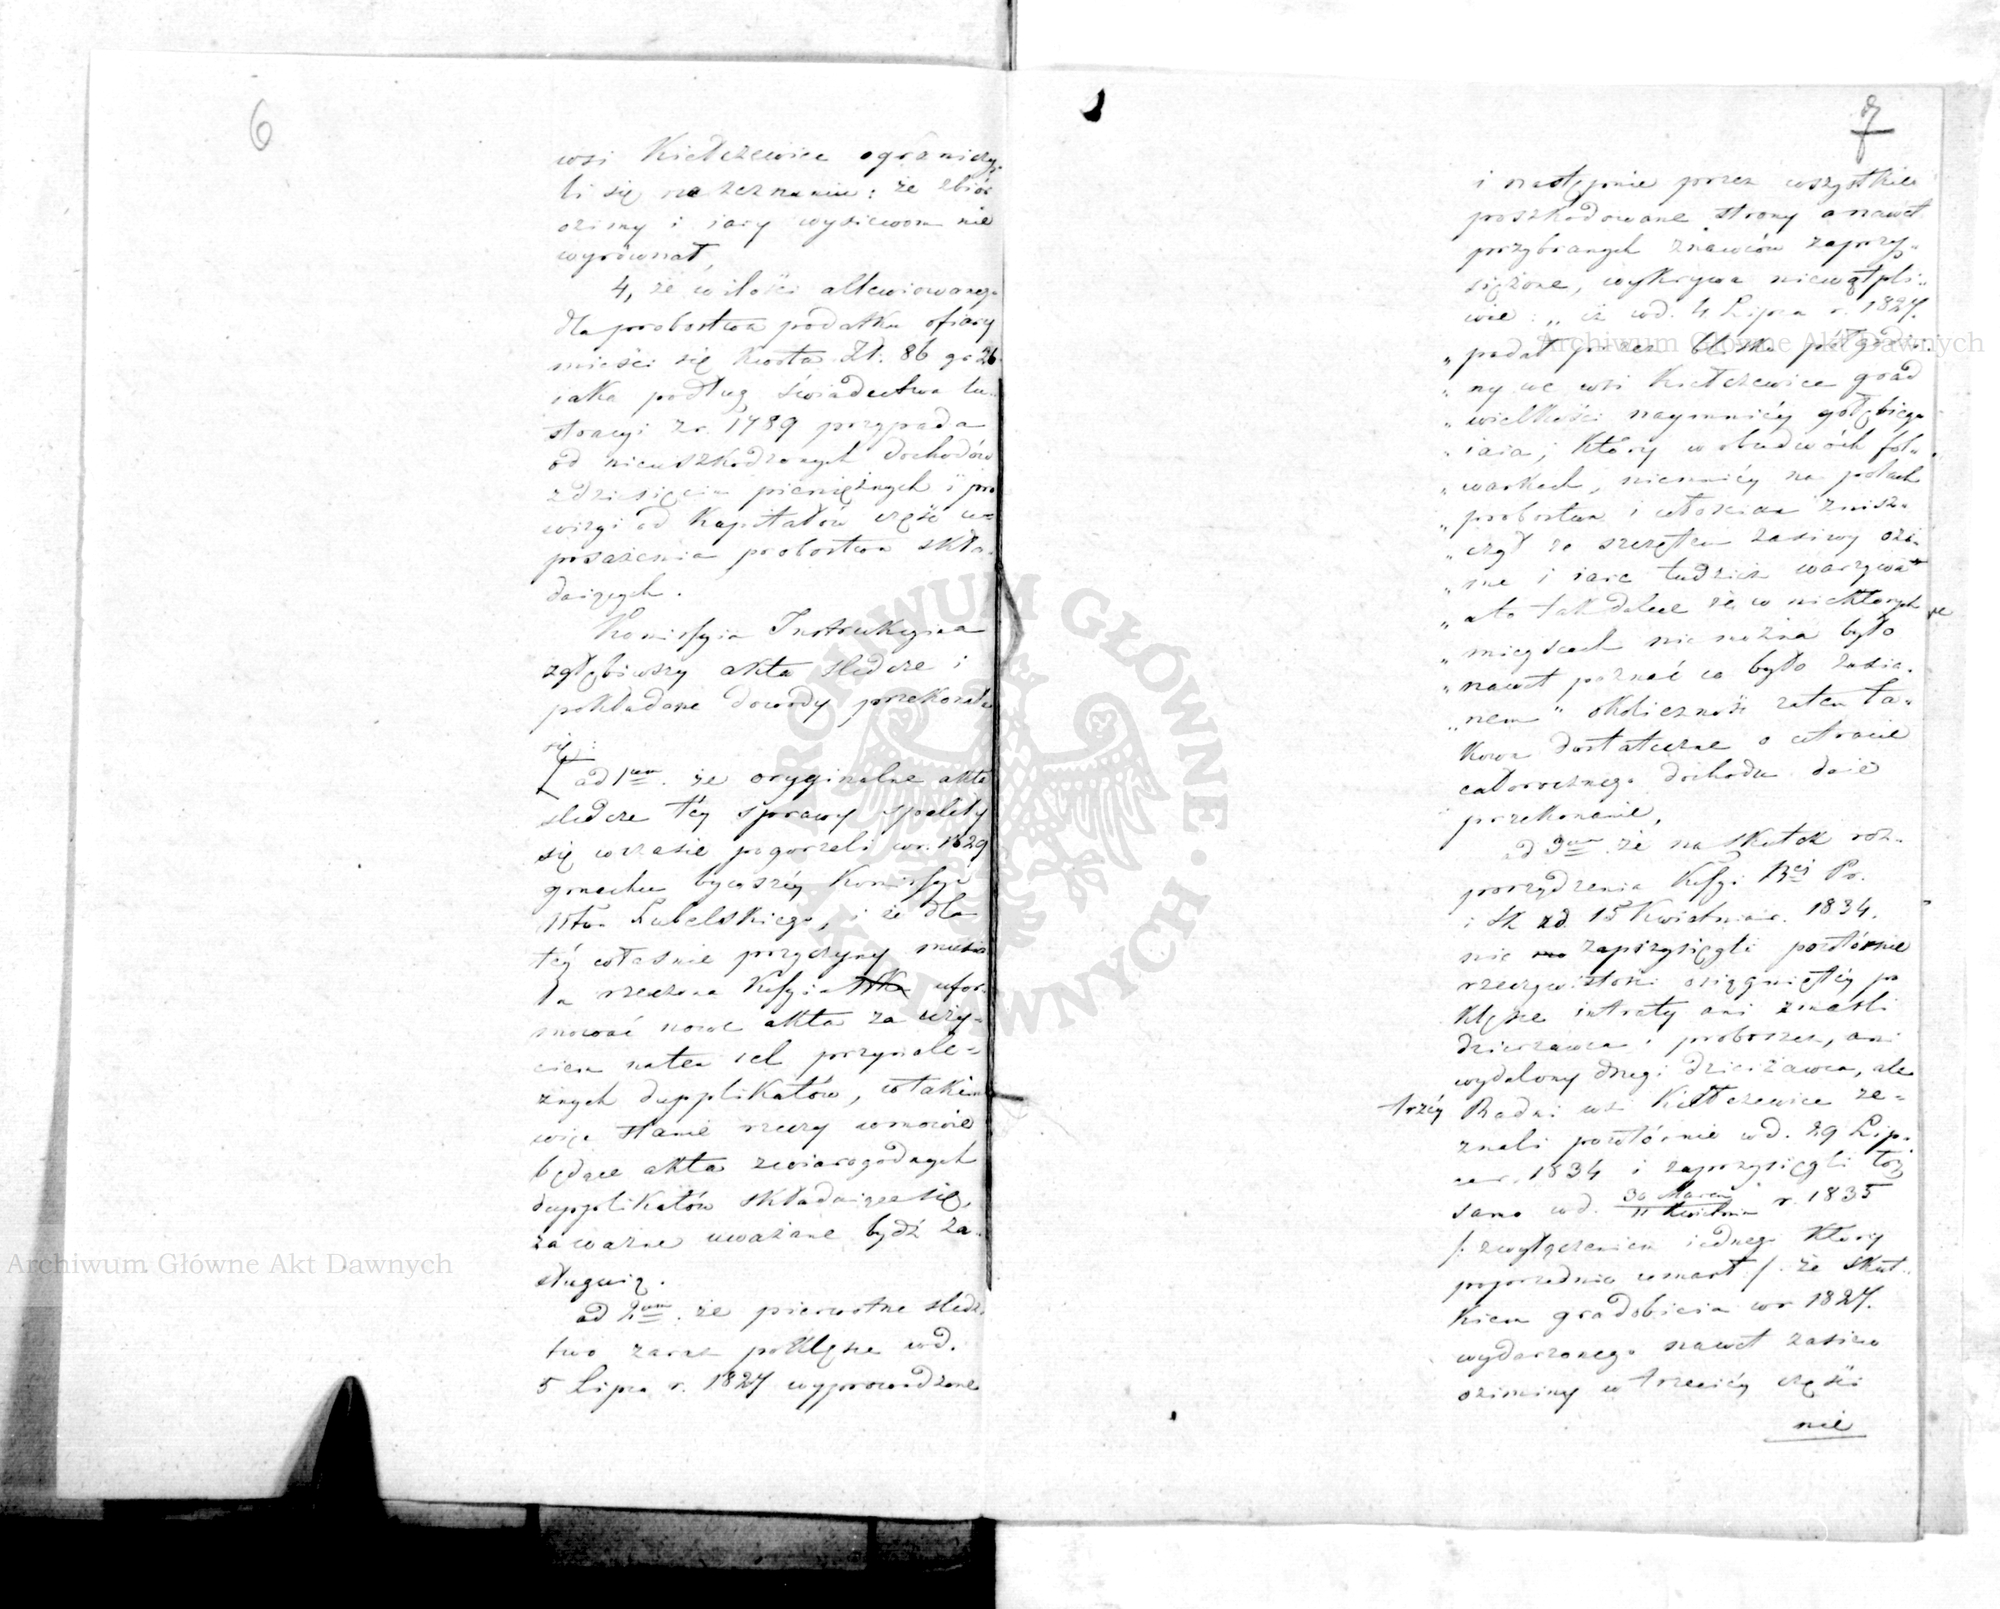 6
wsi Kiełczewice ograniczy,
li się na zeznaniu: że zbiór
ozimy i iary wysiewom nie
wyrównał,
4, że w ilości allewiowanego
dla probostwa podatku ofiary
mieści się kwota Zł. 86 gr 26
iaka podług świadectwa lu-
stracyi z r. 1789 przypada
od nieuszkodzonych dochodów
z dziesięcin pieniężnych i pro
wizyi od kapitałów część u-
posażenia probostwa skła-
daiących.
Komissyia Instrukcyina
zgłębiwszy akta śledcze i
pokładane dowody przekonała
się:
ad 1um. że oryginalne akta
śledcze téy sprawy spality
się w czasie pogorzeli w r. 1829
gmachu bywszéy Komissyi
Wtwa Lubelskiego, i że dla
téy właśnie przyczyny musia
ła rzeczona Kssyia ufor-
mować nowe akta za uży-
ciem na ten cel przynale-
żnych dupplikatów, w takim
więc stanie rzeczy w mowie
będące akta z wiarogodnych
dupplikatów składaiące się,
za ważne uważane bydź za-
sługuią.
ad 2um. że pierwotne śledz-
two zaraz po klęsce w d.
5 Lipca r. 1827 wyprowadzone
7
i następnie przez wszystkie
poszkodowane strony a nawet
przybranych znawców zaprzy-
siężone, wykrywa niewątpli-
wie: „iż w d. 4 Lipca r. 1827.
„padał przez blisko pół godzi-
„ny we wsi Kiełczewice grad
„wielkości naymniéy gołębiego
„iaia, który w obudwóch fol-
„warkach, niemniéy na polach
„probostwa i włościan znisz-
„czył ze szczętem zasiewy ozi-
„me i iare tudzież warzywa
„a to tak dalece że w niektórych
„mieyscach nie można było
„nawet poznać co było zasia-
„nem" okoliczność zatem ta-
kowa dostateczne o utracie
całorocznego dochodu daie
przekonanie,
ad 3um. że na skutek roz-
porządzenia Kssyi Rei Pr.
i Sk z d. 15 Kwietnia r. 1834.
nie zaprzysięgli powtórnie
rzeczywistości osiągniętéy po
klęsce intraty ani zmarli
dzierżawca i proboszcz, ani
wydalony drugi dzierżawca, ale
trzéy Radni wsi Kiełczewice ze-
znali powtórnie w d. 29 Lip-
ca r. 1834 i zaprzysięgli toż
samo w d. 30 Marca / 11 Kwietnia r. 1835
/: z wyłączeniem iednego który
poprzednio umarł :/ że skut-
kiem gradobicia w r 1827.
wydarzonego nawet zasiew
oziminy w trzeciéy części
nie
Archiwum Główne Akt Dawnych
Archiwum Główne Akt Dawnych
ARCHIWUM GŁÓWNE AKT DAWNYCH